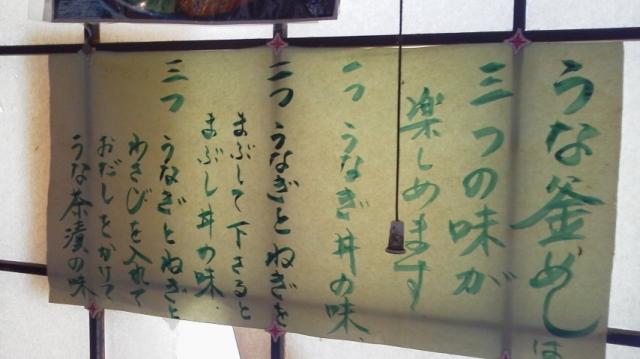 うな釜めしは
三つの味が
楽しめます
一つ うなぎ丼の味、
二つ うなぎとねぎを
まぶして下さると
まぶし丼の味、
三つ うなぎとねぎと
わさびを入れて
おだしをかけて
うな茶漬の味